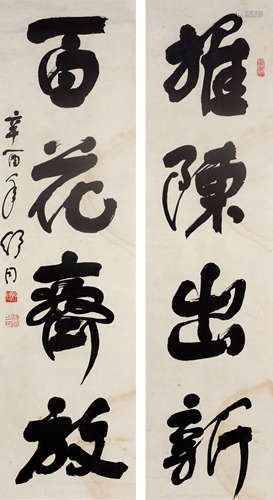 推陳出新
百花齊放
辛酉年舒同